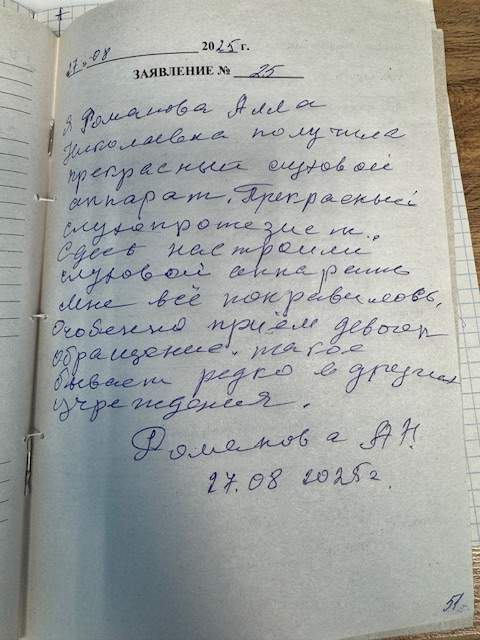 27.08 2025 г.
ЗАЯВЛЕНИЕ № 25
Я Романова Алла
Николаевна получила
прекрасный слуховой
аппарат. Прекрасный
слухопротезист.
Сдесь настроили
слуховой аппарат
мне всё понравилось,
особенно приём девочек
обращение. такое
бывает редко в других
учреждения.
Романова АН.
27.08 2025г.
51